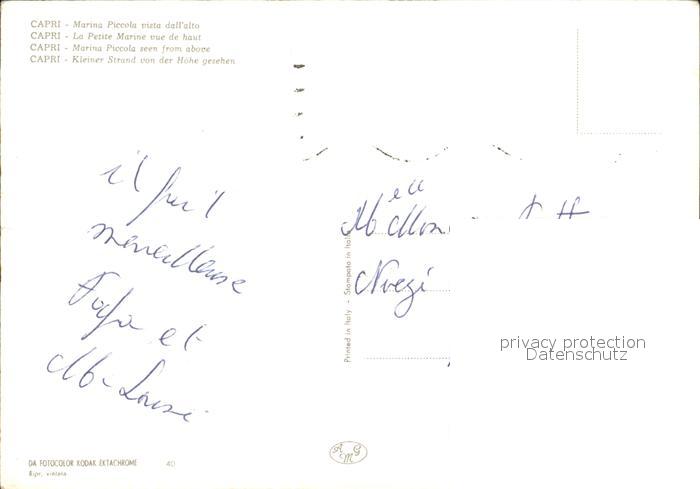 CAPRI - Marina Piccola vista dall'alto
CAPRI - La Petite Marine vue de haut
CAPRI - Marina Piccola seen from above
CAPRI - Kleiner Strand von der Höhe gesehen
il fait
merveilleuse
et
Louise
Printed in Italy - Stampato in Italy
privacy protection
Datenschutz
DA FOTOCOLOR KODAK EKTACHROME 40
Ripr. vietata